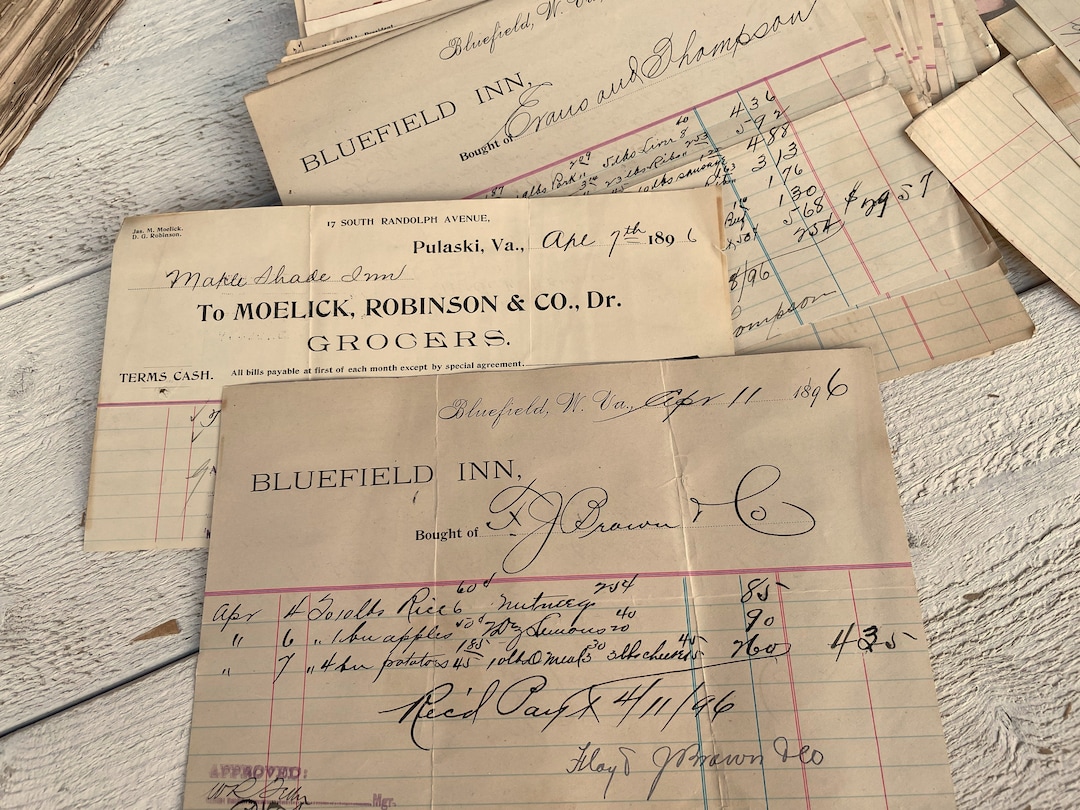 Bluefield, W. Va.,
BLUEFIELD INN,
Bought of Evans and Thompson
187 lbs Pork 11 229 5 lbs Liver 8 40 436
23 lbs Ribs 11 253 592
10 lbs sausage 488
313
176
130
568 $29 57
254
8/96
ompson
Jas. M. Moelick.
D. G. Robinson.
17 SOUTH RANDOLPH AVENUE,
Pulaski, Va., Apl 7th 1896
Maple Shade Inn
To MOELICK, ROBINSON & CO., Dr.
GROCERS.
TERMS CASH. All bills payable at first of each month except by special agreement.
Bluefield, W. Va., Apr 11 1896
BLUEFIELD INN,
Bought of F J Brown & Co
Apr 4 To 10 lbs Rice 6 60¢ Nutmeg 25¢ 85
" 6 " 1 bu apples 50¢ 2 Dz Lemons 20 40 90
" 7 " 4 bu potatoes 45 185 10 lbs O meal 3 30 3 lbs cheese 15 45 260 435
Rec'd Payt 4/11/96
Floyd J Brown & Co
APPROVED:
Mgr.